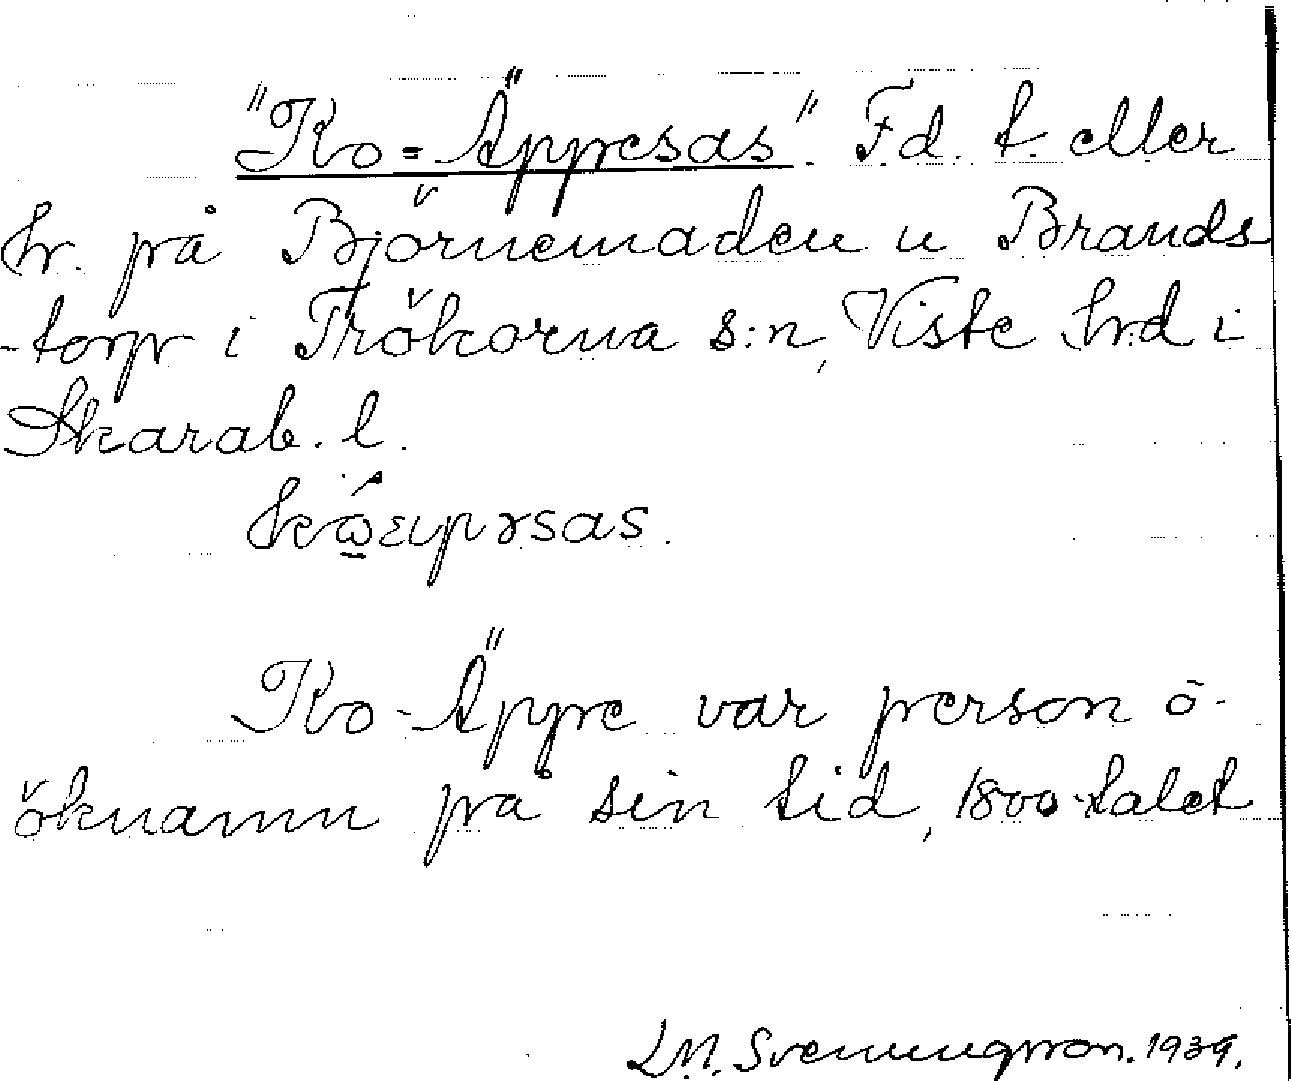 "Ko-Äppesas". Fd. t. eller
h. på Björnemaden u Brands
-torp i Trökörna s:n, Viste hrd i
Skarab. l.
Ko-Äppe var person ö-
öknamn på sin tid, 1800-talet
L.M. Svenungsson. 1939.